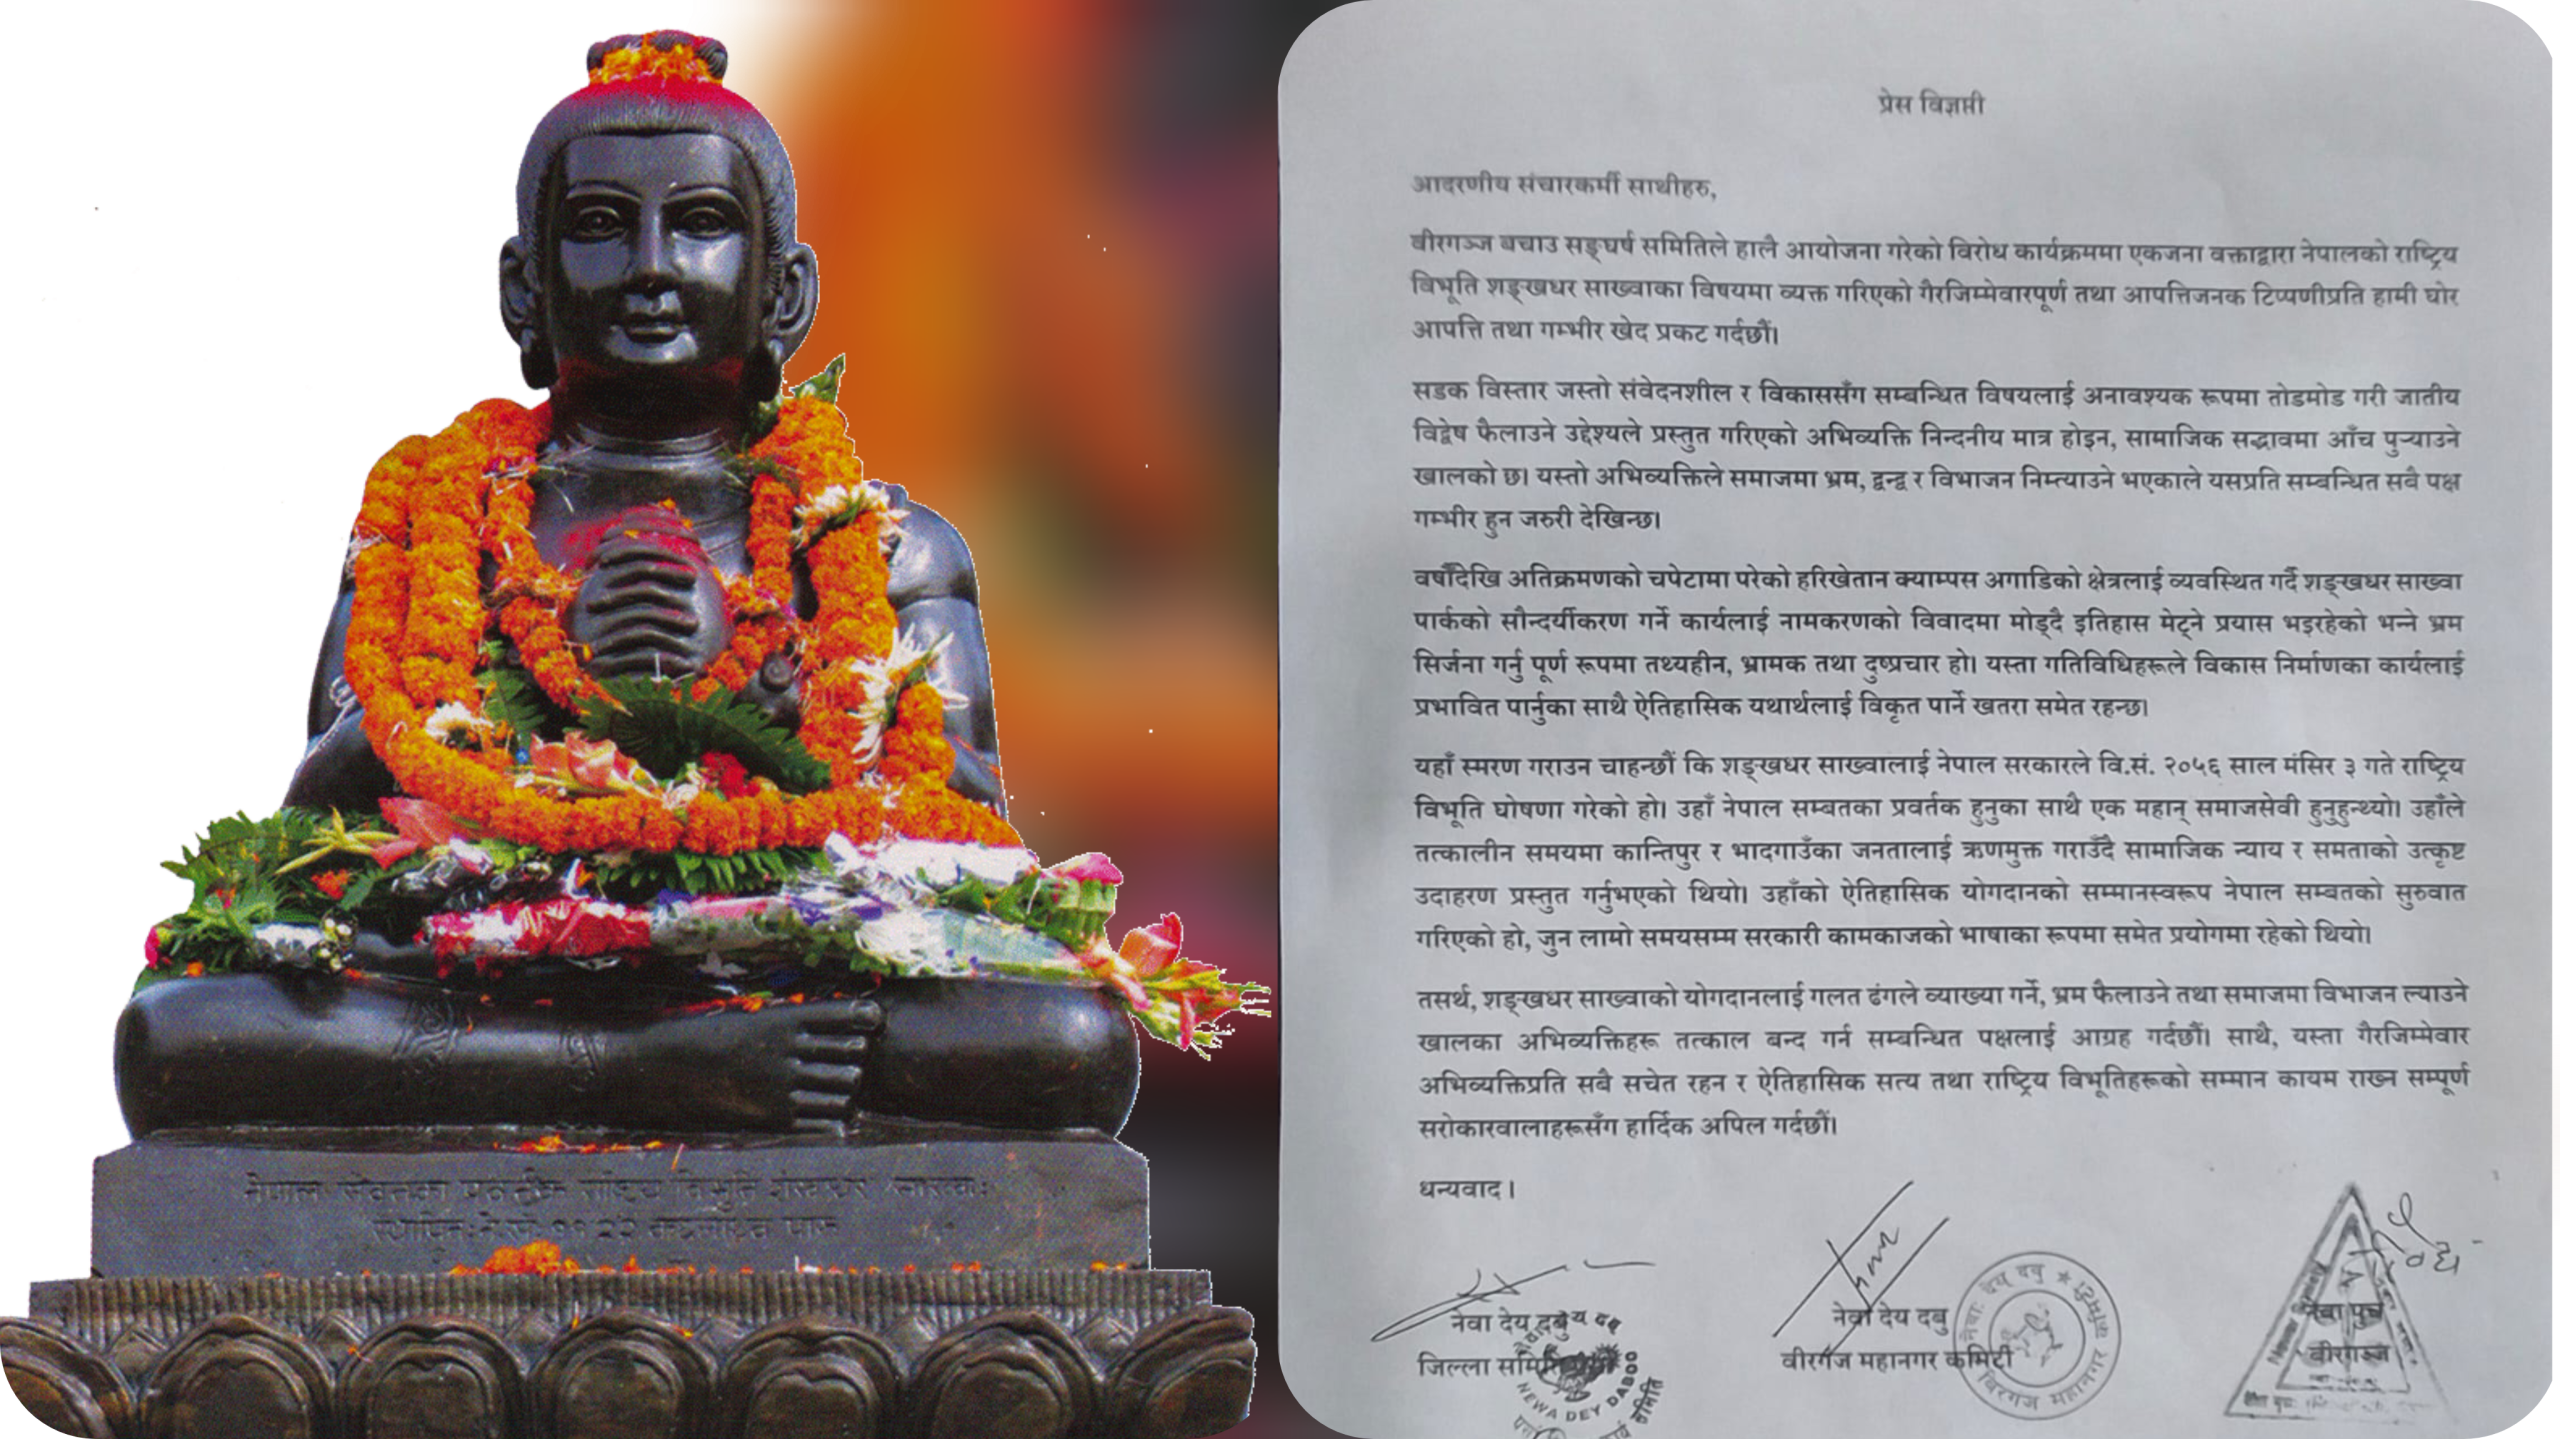 प्रेस विज्ञप्ती
आदरणीय संचारकर्मी साथीहरु,
वीरगञ्ज बचाउ सङ्घर्ष समितिले हालै आयोजना गरेको विरोध कार्यक्रममा एकजना वक्ताद्वारा नेपालको राष्ट्रिय
विभूति शङ्खधर साख्वाका विषयमा व्यक्त गरिएको गैरजिम्मेवारपूर्ण तथा आपत्तिजनक टिप्पणीप्रति हामी घोर
आपत्ति तथा गम्भीर खेद प्रकट गर्दछौं।
सडक विस्तार जस्तो संवेदनशील र विकाससँग सम्बन्धित विषयलाई अनावश्यक रूपमा तोडमोड गरी जातीय
विद्वेष फैलाउने उद्देश्यले प्रस्तुत गरिएको अभिव्यक्ति निन्दनीय मात्र होइन, सामाजिक सद्भावमा आँच पुऱ्याउने
खालको छ। यस्तो अभिव्यक्तिले समाजमा भ्रम, द्वन्द्व र विभाजन निम्त्याउने भएकाले यसप्रति सम्बन्धित सबै पक्ष
गम्भीर हुन जरुरी देखिन्छ।
वर्षौंदेखि अतिक्रमणको चपेटामा परेको हरिखेतान क्याम्पस अगाडिको क्षेत्रलाई व्यवस्थित गर्दै शङ्खधर साख्वा
पार्कको सौन्दर्यीकरण गर्ने कार्यलाई नामकरणको विवादमा मोड्दै इतिहास मेट्ने प्रयास भइरहेको भन्ने भ्रम
सिर्जना गर्नु पूर्ण रूपमा तथ्यहीन, भ्रामक तथा दुष्प्रचार हो। यस्ता गतिविधिहरूले विकास निर्माणका कार्यलाई
प्रभावित पार्नुका साथै ऐतिहासिक यथार्थलाई विकृत पार्ने खतरा समेत रहन्छ।
यहाँ स्मरण गराउन चाहन्छौं कि शङ्खधर साख्वालाई नेपाल सरकारले वि.सं. २०५६ साल मंसिर ३ गते राष्ट्रिय
विभूति घोषणा गरेको हो। उहाँ नेपाल सम्बतका प्रवर्तक हुनुका साथै एक महान् समाजसेवी हुनुहुन्थ्यो। उहाँले
तत्कालीन समयमा कान्तिपुर र भादगाउँका जनतालाई ऋणमुक्त गराउँदै सामाजिक न्याय र समताको उत्कृष्ट
उदाहरण प्रस्तुत गर्नुभएको थियो। उहाँको ऐतिहासिक योगदानको सम्मानस्वरूप नेपाल सम्बतको सुरुवात
गरिएको हो, जुन लामो समयसम्म सरकारी कामकाजको भाषाका रूपमा समेत प्रयोगमा रहेको थियो।
तसर्थ, शङ्खधर साख्वाको योगदानलाई गलत ढंगले व्याख्या गर्ने, भ्रम फैलाउने तथा समाजमा विभाजन ल्याउने
खालका अभिव्यक्तिहरू तत्काल बन्द गर्न सम्बन्धित पक्षलाई आग्रह गर्दछौं। साथै, यस्ता गैरजिम्मेवार
अभिव्यक्तिप्रति सबै सचेत रहन र ऐतिहासिक सत्य तथा राष्ट्रिय विभूतिहरूको सम्मान कायम राख्न सम्पूर्ण
सरोकारवालाहरूसँग हार्दिक अपिल गर्दछौं।
धन्यवाद।
नेवा देय दबु
जिल्ला समिति
NEWA DEY DABOO
नेवा देय दबु
वीरगंज महानगर कमिटी
नेवा: देय् दबु
बिरगंज महानगर
नेवा पुच
वीरगञ्ज